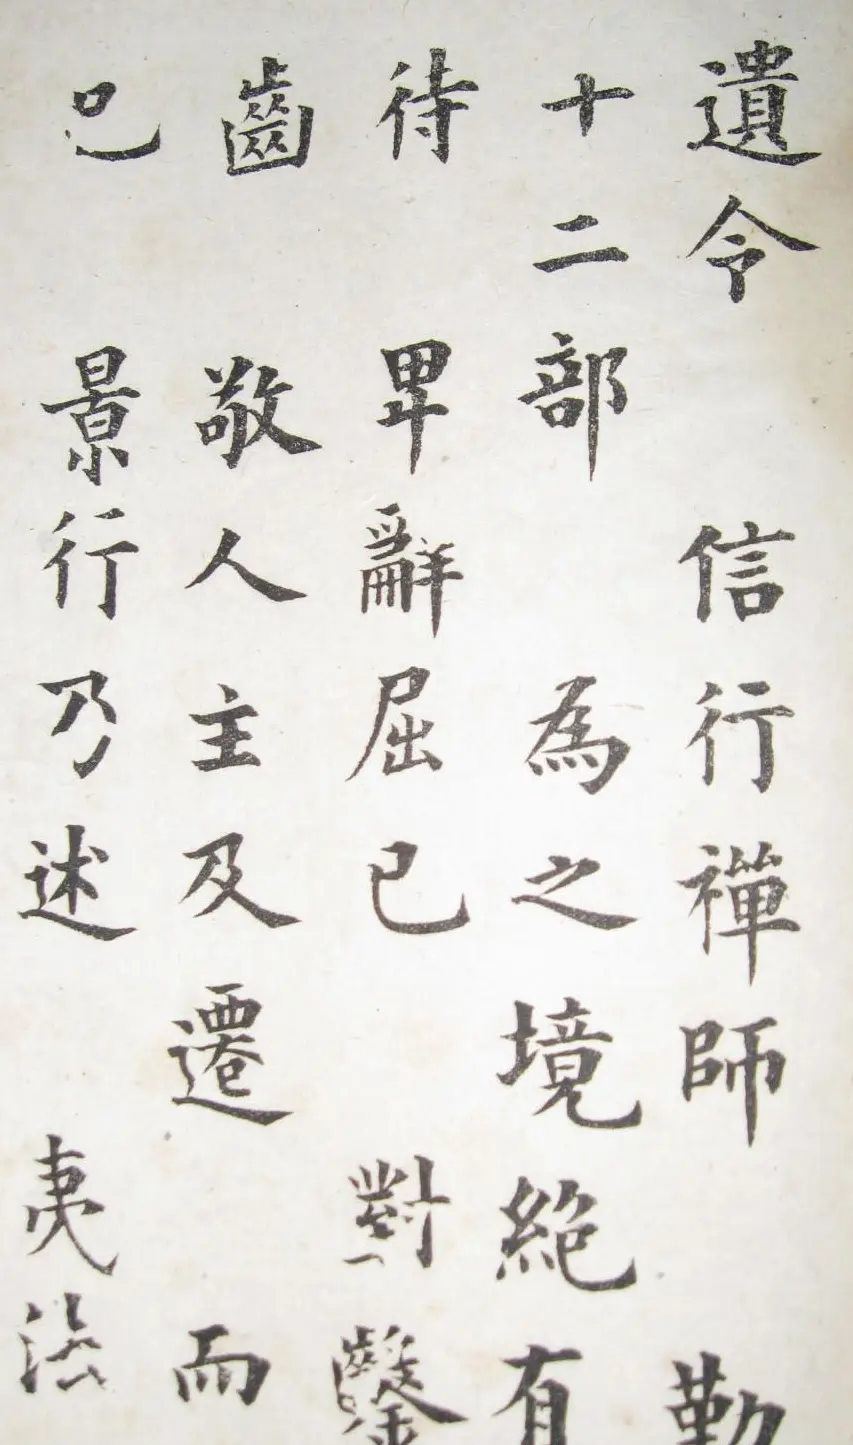 遺令 信行禪師 勤
十二部 為之境絕有
待 畢辭屈已 對鑿
齒 敬人主及遷 而
已 景行乃述 夷法